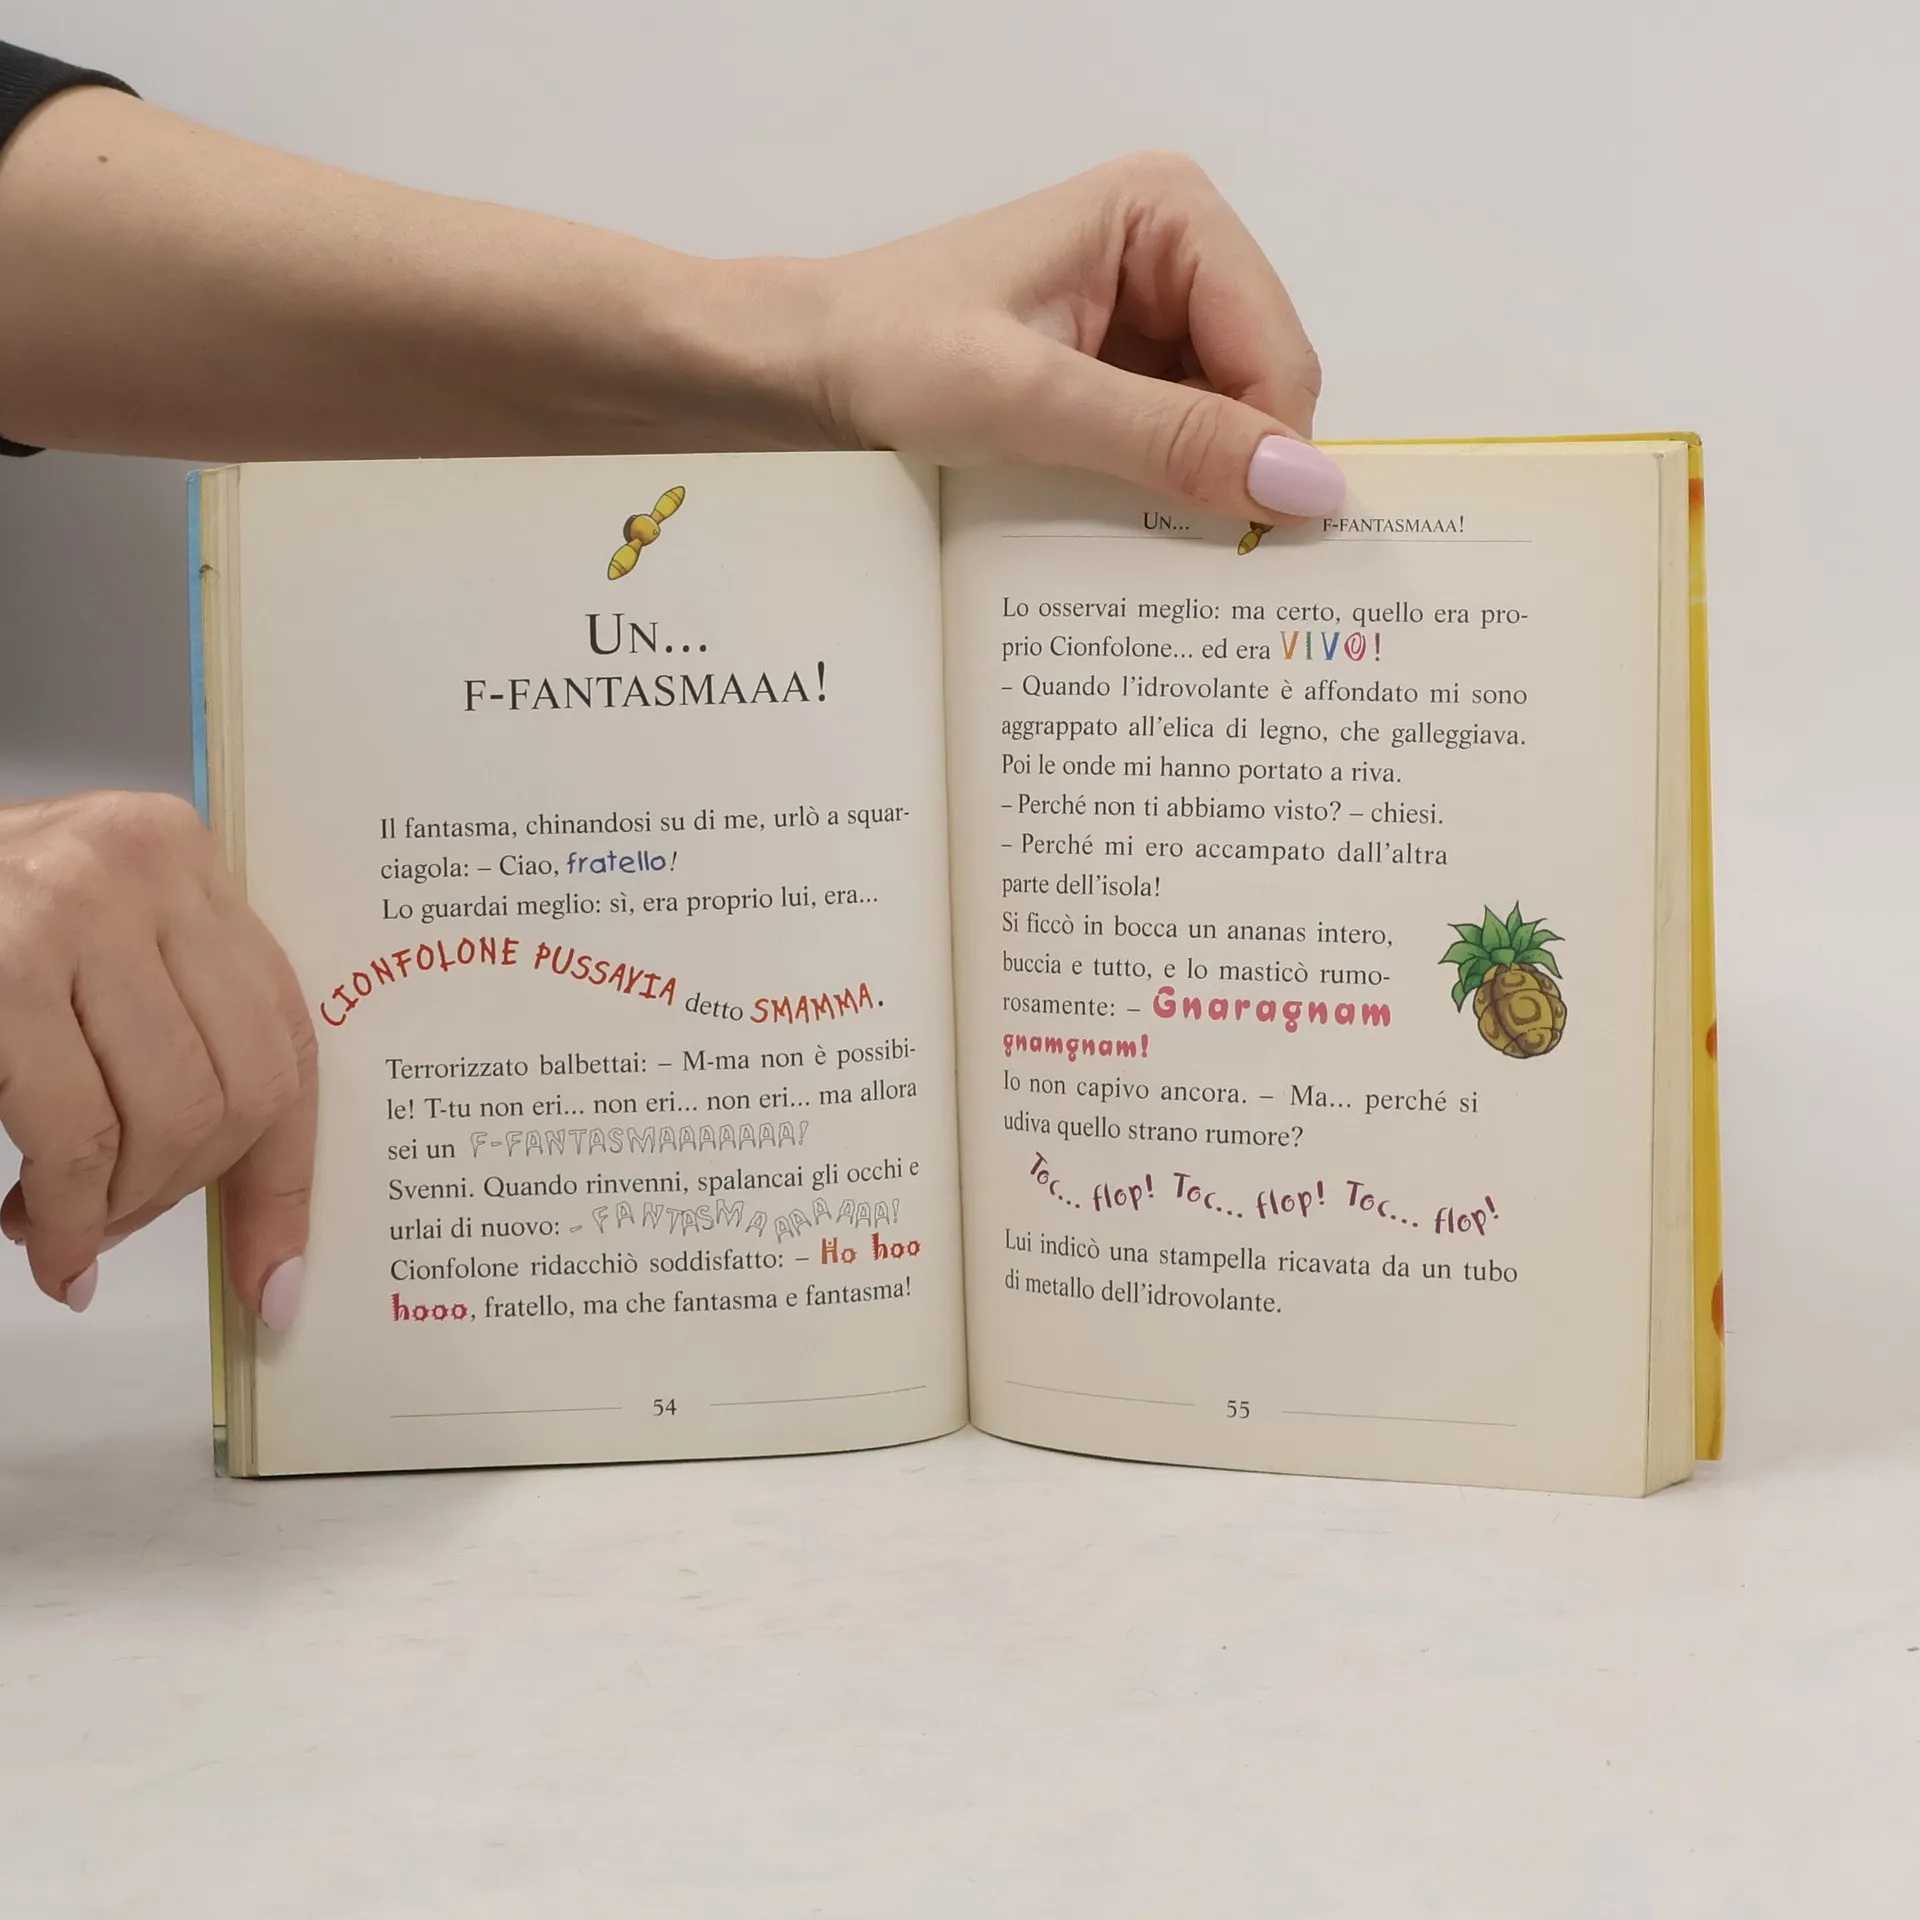 Un...
F-FANTASMAAA!
Il fantasma, chinandosi su di me, urlò a squar-
ciagola: – Ciao, fratello!
Lo guardai meglio: sì, era proprio lui, era...
CIONFOLONE PUSSAVIA detto SMAMMA.
Terrorizzato balbettai: – M-ma non è possibi-
le! T-tu non eri... non eri... non eri... ma allora
sei un F-FANTASMAAAAAAA!
Svenni. Quando rinvenni, spalancai gli occhi e
urlai di nuovo: – FANTASMAAAAAAAA!
Cionfolone ridacchiò soddisfatto: – Ho hoo
hooo, fratello, ma che fantasma e fantasma!
54
Un... F-FANTASMAAA!
Lo osservai meglio: ma certo, quello era pro-
prio Cionfolone... ed era VIVO!
– Quando l'idrovolante è affondato mi sono
aggrappato all'elica di legno, che galleggiava.
Poi le onde mi hanno portato a riva.
– Perché non ti abbiamo visto? – chiesi.
– Perché mi ero accampato dall'altra
parte dell'isola!
Si ficcò in bocca un ananas intero,
buccia e tutto, e lo masticò rumo-
rosamente: – Gnaragnam
gnamgnam!
Io non capivo ancora. – Ma... perché si
udiva quello strano rumore?
Toc... flop! Toc... flop! Toc... flop!
Lui indicò una stampella ricavata da un tubo
di metallo dell'idrovolante.
55